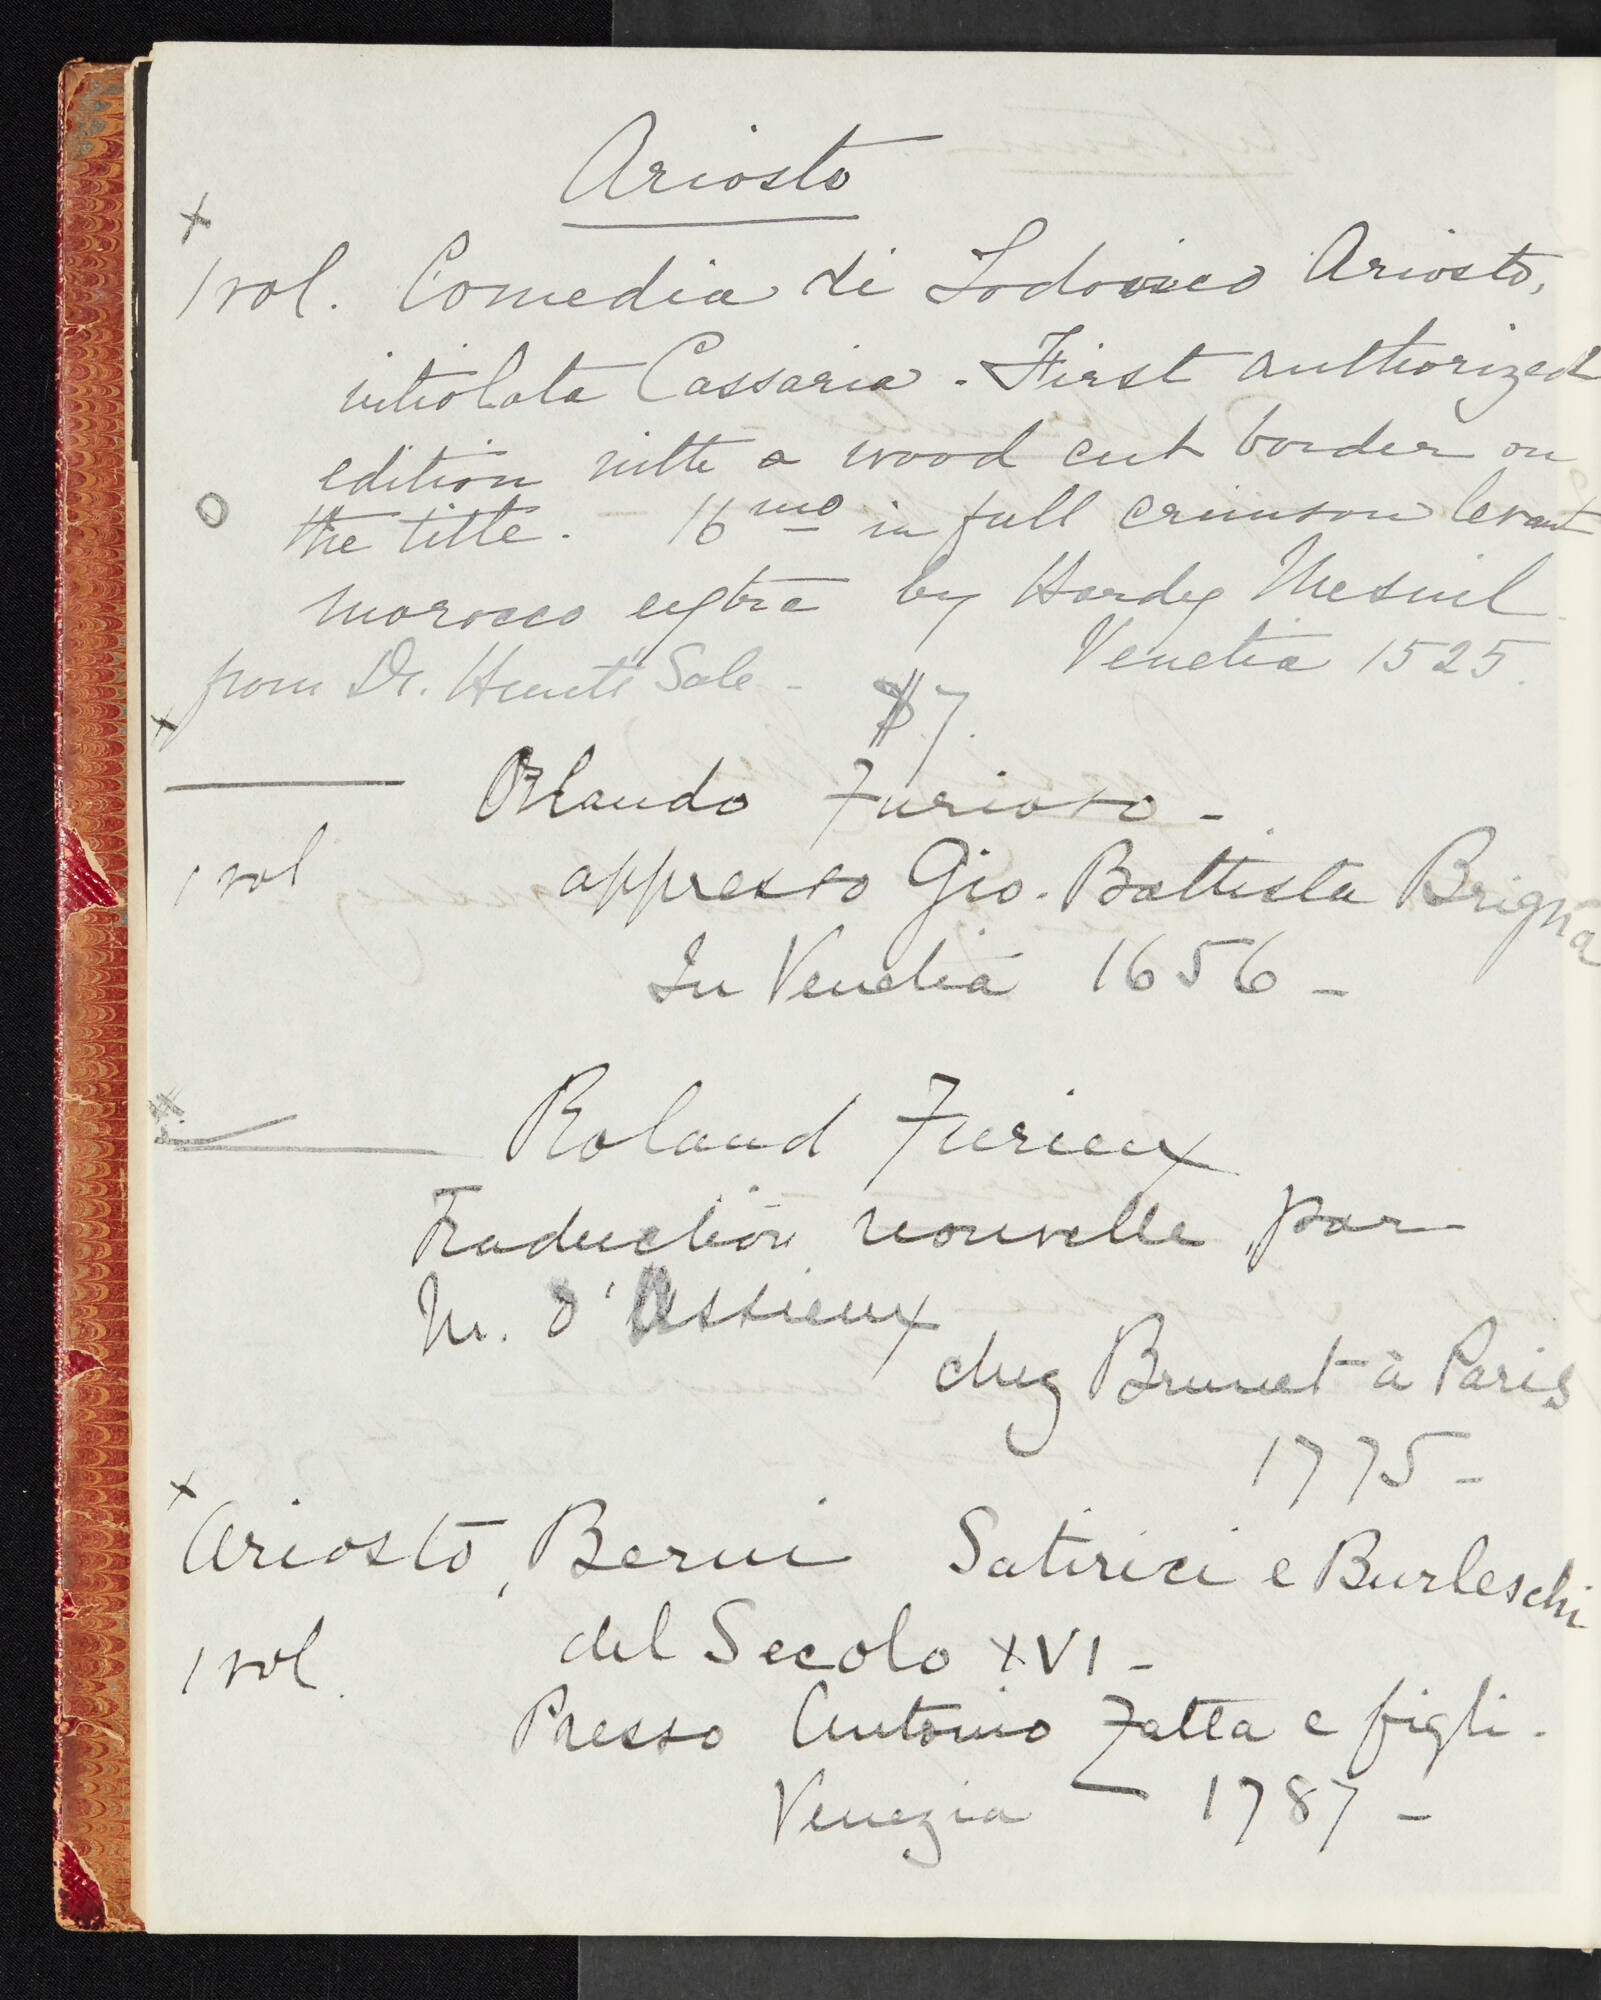 Ariosto
x
1 vol. Comedia di Lodovico Ariosto,
intiolata Cassaria. First authorized
edition with a wood cut border on
the title. - 16mo in full crimson levant
morocco extra by Hardy Mesnil.
Venetia 1525.
from Dr. Hunt's Sale - $7.
x
Orlando Furioso -
1 vol appresso Gio. Battista Brigna
In Venetia 1656 -
Roland Furieux
Traduction nouvelle par
M. d'Ussieux
chez Brunet à Paris
1775 -
x
Ariosto, Berni Satirici e Burleschi
del Secolo XVI -
1 vol.
Presso Antonio Zatta e figli.
Venezia - 1787 -